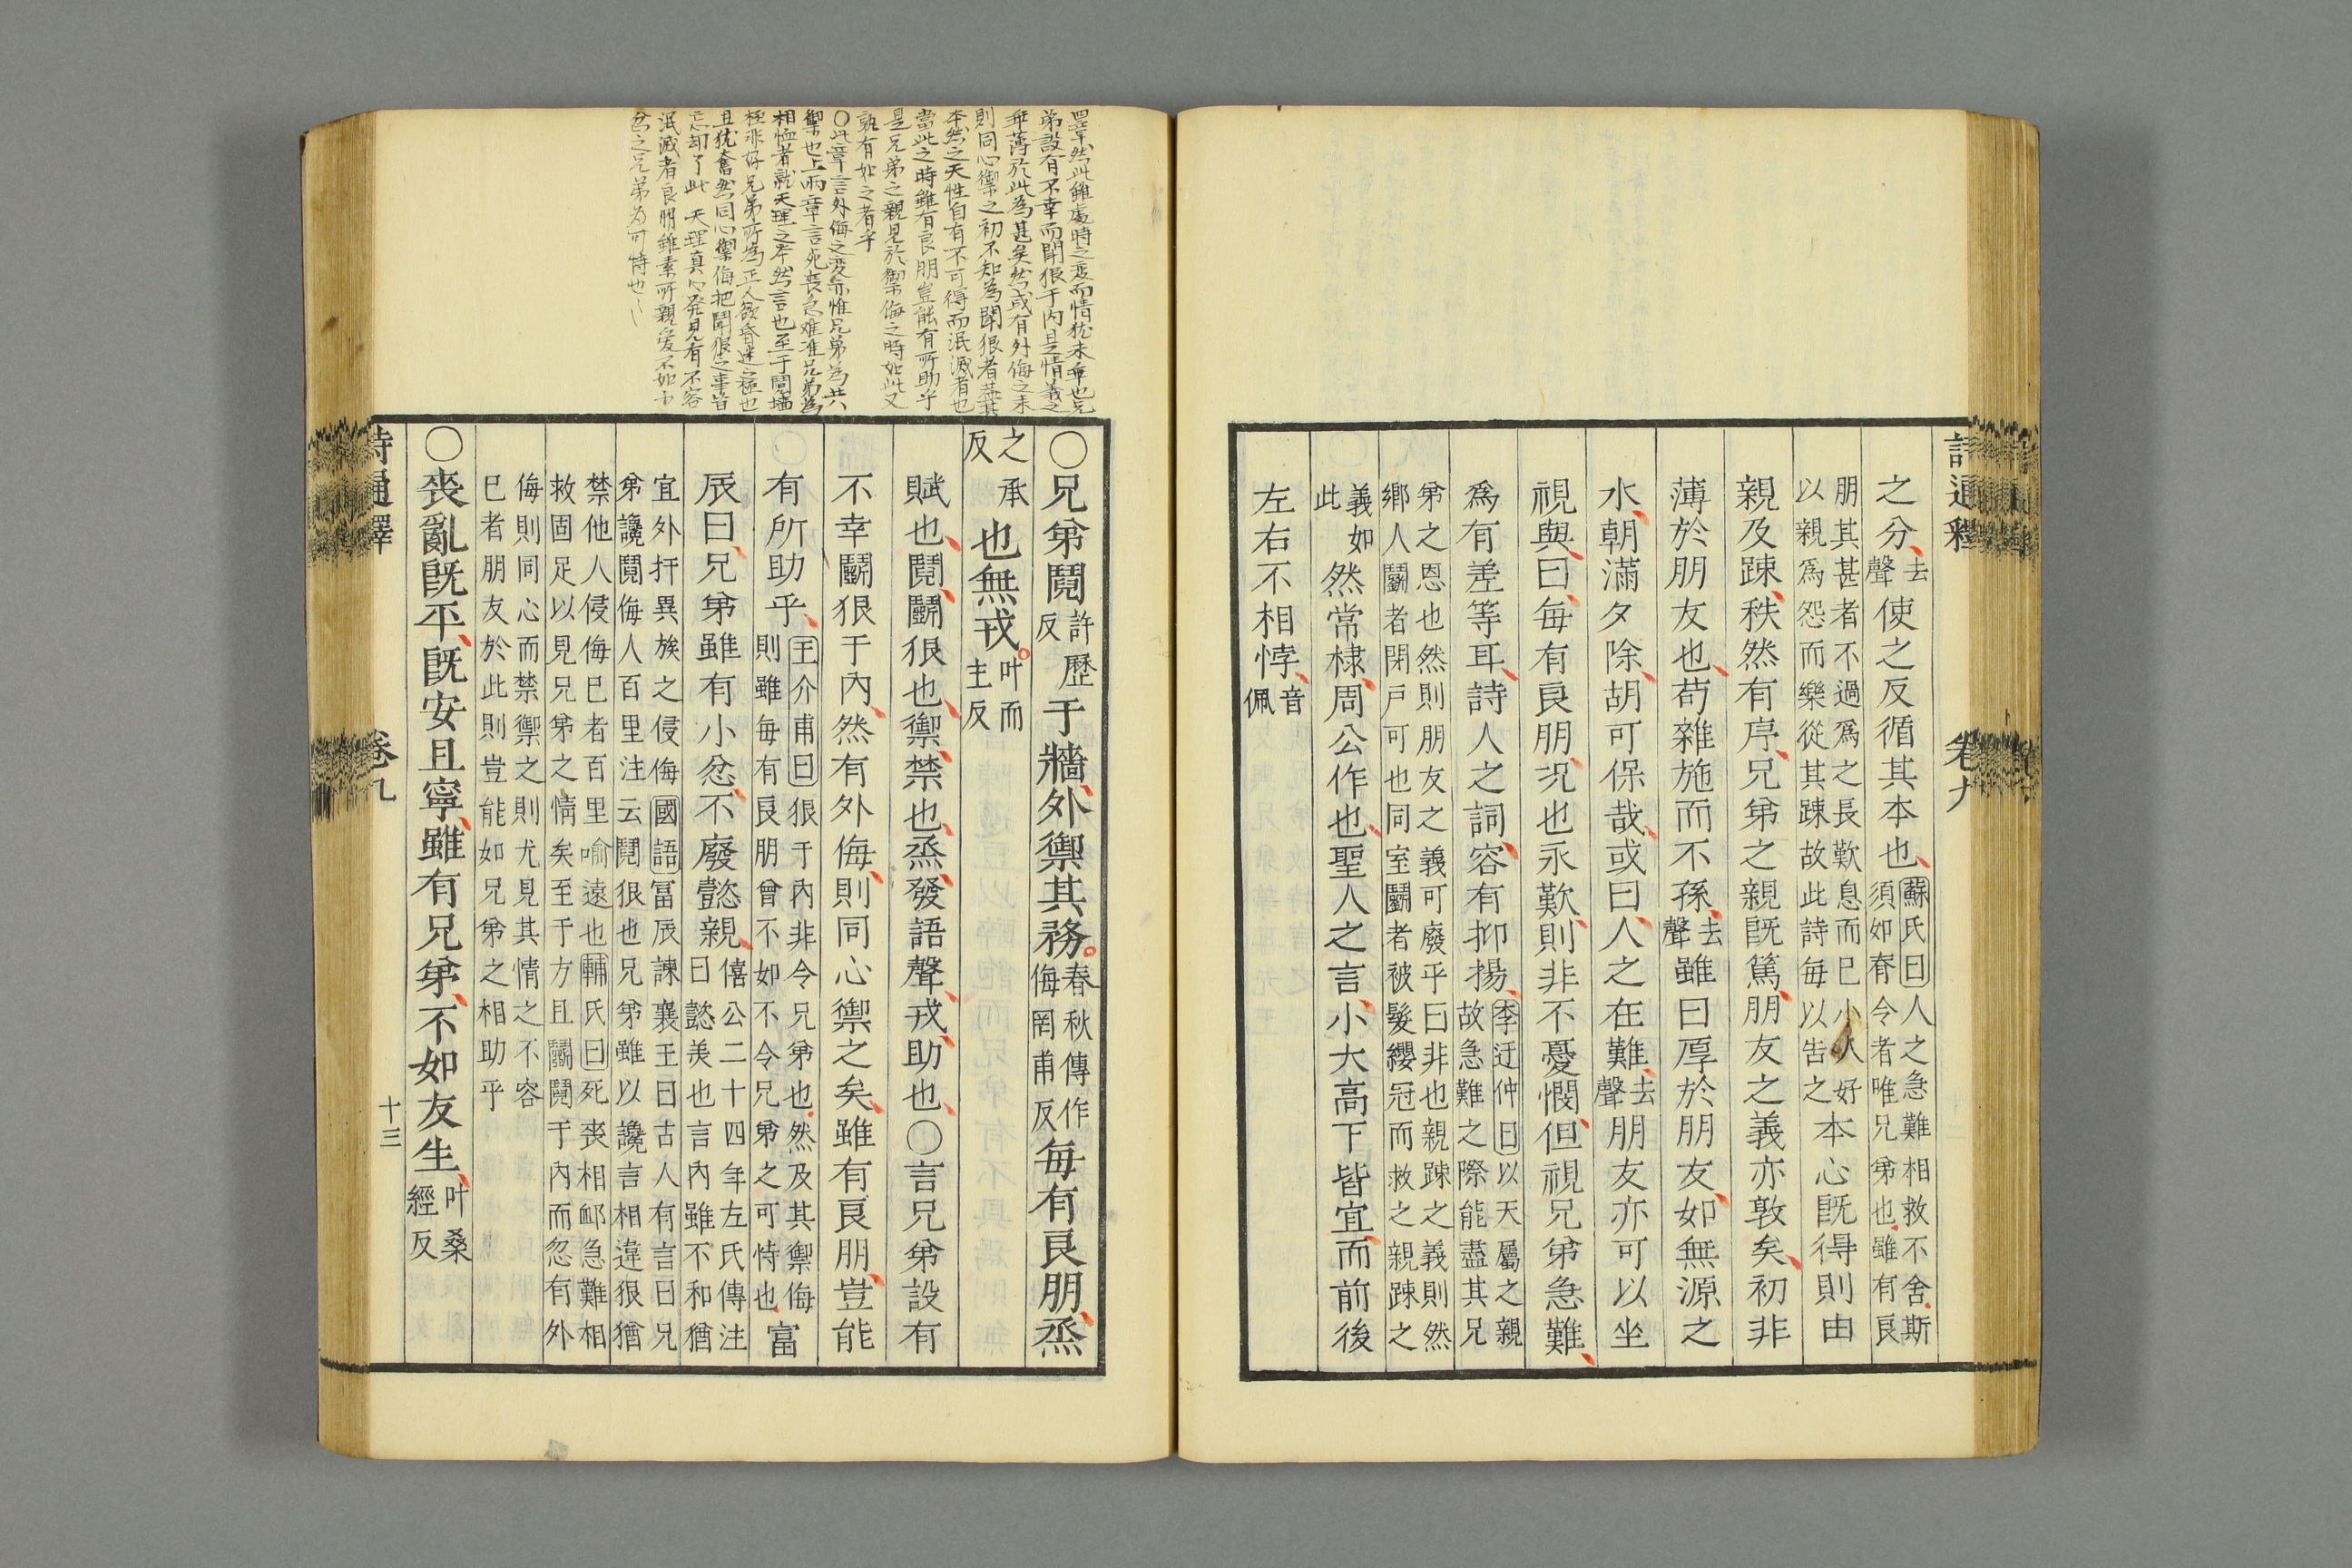 詩通釋
卷九
之分去聲使之反循其本也蘇氏曰人之急難相救不舍斯須如脊令者唯兄弟也雖有良
朋其甚者不過爲之長歎息而已小人好以親爲怨而樂從其踈故此詩每以告之本心旣得則由
親及踈秩然有序兄弟之親旣篤朋友之義亦敦矣初非
薄於朋友也苟雜施而不孫去聲雖曰厚於朋友如無源之
水朝滿夕除胡可保哉或曰人之在難去聲朋友亦可以坐
視與曰每有良朋況也永歎則非不憂憫但視兄弟急難
爲有差等耳詩人之詞容有抑揚李迂仲曰以天屬之親故急難之際能盡其兄
弟之恩也然則朋友之義可廢乎曰非也親踈之義則然鄉人鬭者閉戶可也同室鬭者被髮纓冠而救之親踈之
義如此如然常棣周公作也聖人之言小大高下皆宜而前後
左右不相悖音佩
〇兄弟鬩許歷反于牆外禦其務春秋傳作侮罔甫反每有良朋烝
之承反也無戎叶而主反
賦也鬩鬭狠也禦禁也烝發語聲戎助也〇言兄弟設有
不幸鬭狠于內然有外侮則同心禦之矣雖有良朋豈能
有所助乎王介甫曰狠于內非令兄弟也然及其禦侮則雖每有良朋曾不如不令兄弟之可恃也富
辰曰兄弟雖有小忿不廢懿親僖公二十四年左氏傳注曰懿美也言內雖不和猶
宜外扞異族之侵侮國語富辰諫襄王曰古人有言曰兄弟讒鬩侮人百里注云鬩狠也兄弟雖以讒言相違狠猶
禁他人侵侮已者百里喻遠也輔氏曰死喪相邮急難相救固足以見兄弟之情矣至于方且鬭鬩于內而忽有外
侮則同心而禁禦之則尤見其情之不容已者朋友於此則豈能如兄弟之相助乎
〇喪亂旣平旣安且寧雖有兄弟不如友生叶桑經反
詩通釋
卷九
十三
弟設有不幸而鬩狠于內且情義之
乖薄於此為甚矣然或有外侮之來
則同心禦之初不知為鬩狠者蓋其
本然之天性自有不可得而泯滅者也
當此之時雖有良朋豈能有所助乎
是兄弟之親見於禦侮之時如此又
孰有如之者乎
〇此章言外侮之變亦惟兄弟為共
禦也上兩章言死喪急難准兄弟為
相恤者就天理之本然言也至于鬩墻
極非好兄弟所為正人欲昏迷之極也
且犹奮然同心禦侮把鬩狠之事皆
忘却了此天理真心發見有不容
泯滅者良朋雖素所親愛不如小
忿之兄弟為可恃也